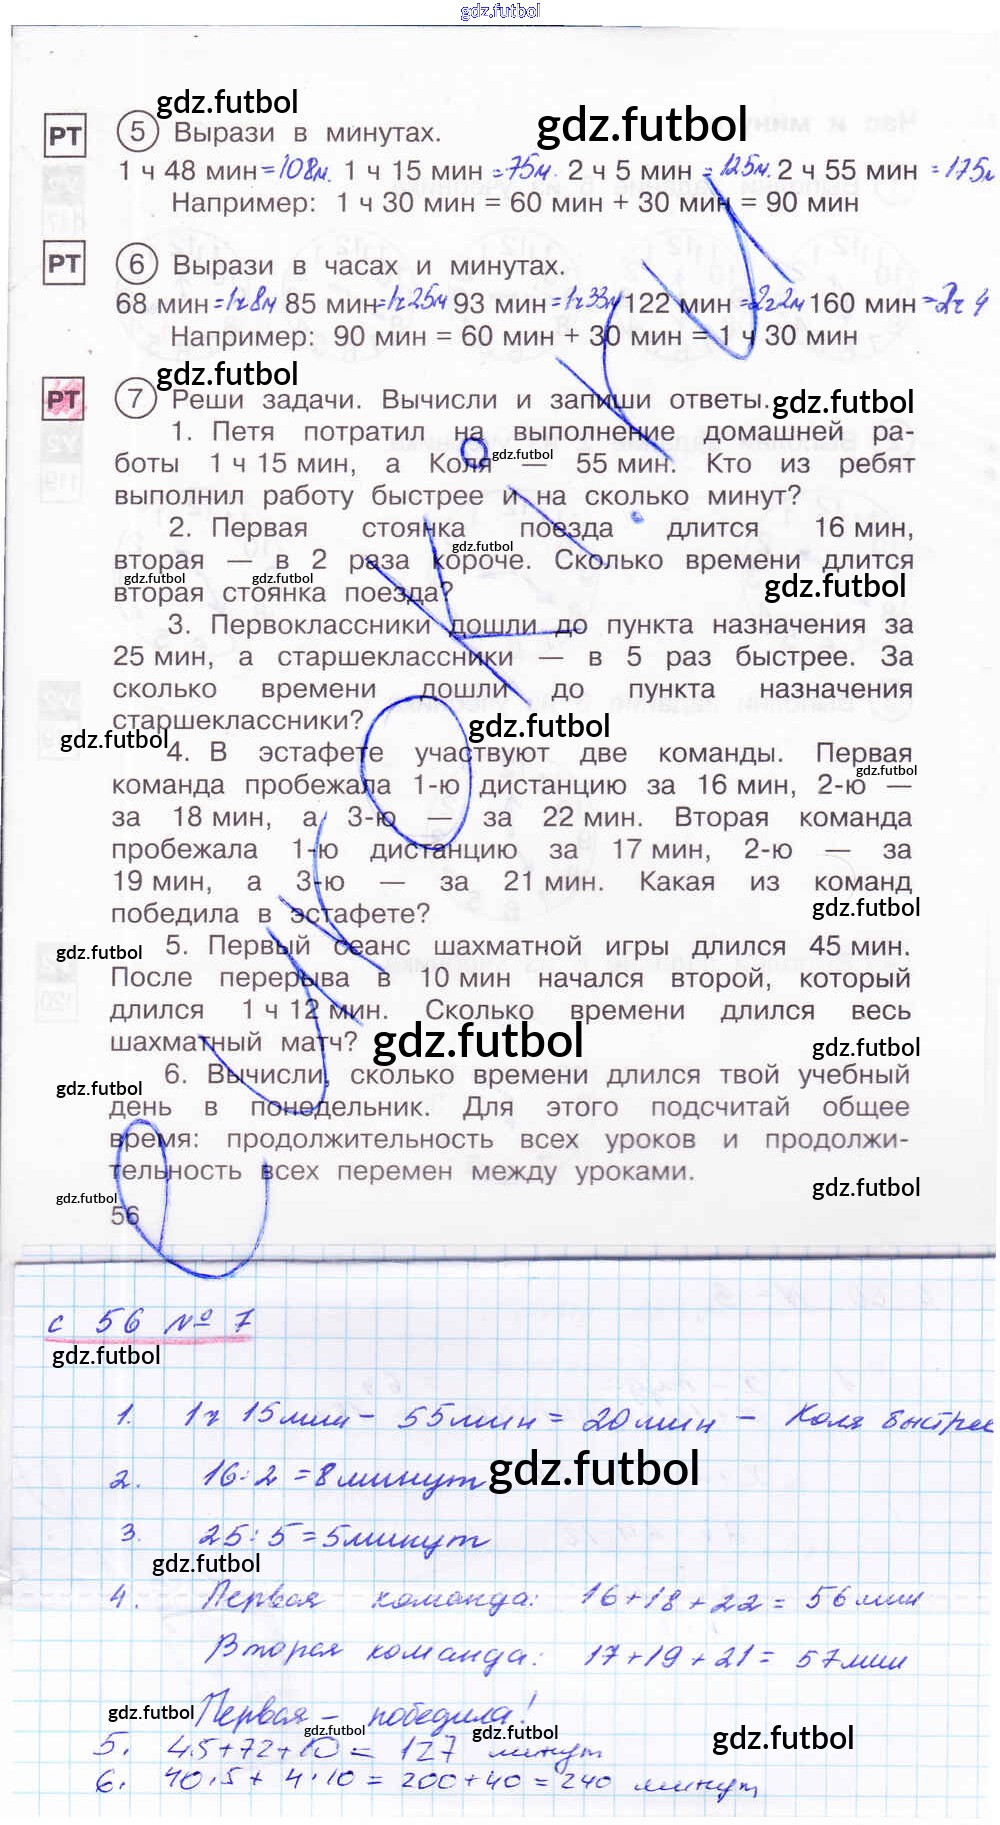 gdz.futbol
gdz.futbol
gdz.futbol
РТ 5 Вырази в минутах.
1 ч 48 мин =108м. 1 ч 15 мин =75м. 2 ч 5 мин =125м. 2 ч 55 мин =175м
Например: 1 ч 30 мин = 60 мин + 30 мин = 90 мин
РТ 6 Вырази в часах и минутах.
68 мин =1ч8м 85 мин =1ч25м 93 мин =1ч33м 122 мин =2ч2м 160 мин =2ч4
Например: 90 мин = 60 мин + 30 мин = 1 ч 30 мин
gdz.futbol
РТ 7 Реши задачи. Вычисли и запиши ответы.
gdz.futbol
1. Петя потратил на выполнение домашней ра-
боты 1 ч 15 мин, а Коля — 55 мин. Кто из ребят
gdz.futbol
выполнил работу быстрее и на сколько минут?
2. Первая стоянка поезда длится 16 мин,
gdz.futbol
вторая — в 2 раза короче. Сколько времени длится
gdz.futbol gdz.futbol gdz.futbol
вторая стоянка поезда?
3. Первоклассники дошли до пункта назначения за
25 мин, а старшеклассники — в 5 раз быстрее. За
сколько времени дошли до пункта назначения
старшеклассники?
gdz.futbol gdz.futbol
4. В эстафете участвуют две команды. Первая
gdz.futbol
команда пробежала 1-ю дистанцию за 16 мин, 2-ю —
за 18 мин, а 3-ю — за 22 мин. Вторая команда
пробежала 1-ю дистанцию за 17 мин, 2-ю — за
19 мин, а 3-ю — за 21 мин. Какая из команд
победила в эстафете?
gdz.futbol
5. Первый сеанс шахматной игры длился 45 мин.
gdz.futbol
После перерыва в 10 мин начался второй, который
длился 1 ч 12 мин. Сколько времени длился весь
шахматный матч?
gdz.futbol gdz.futbol
6. Вычисли, сколько времени длился твой учебный
gdz.futbol
день в понедельник. Для этого подсчитай общее
время: продолжительность всех уроков и продолжи-
тельность всех перемен между уроками.
gdz.futbol gdz.futbol
56
с 56 № 7
gdz.futbol
1. 1ч 15мин - 55мин = 20мин - Коля быстрее
2. 16:2 = 8минут
gdz.futbol
3. 25:5 = 5минут
gdz.futbol
4. Первая команда: 16+18+22= 56мин
Вторая команда: 17+19+21= 57мин
Первая - победила!
gdz.futbol gdz.futbol gdz.futbol gdz.futbol
5. 45+72+10= 127 минут
6. 40·5+ 4·10 = 200+40 = 240 минут